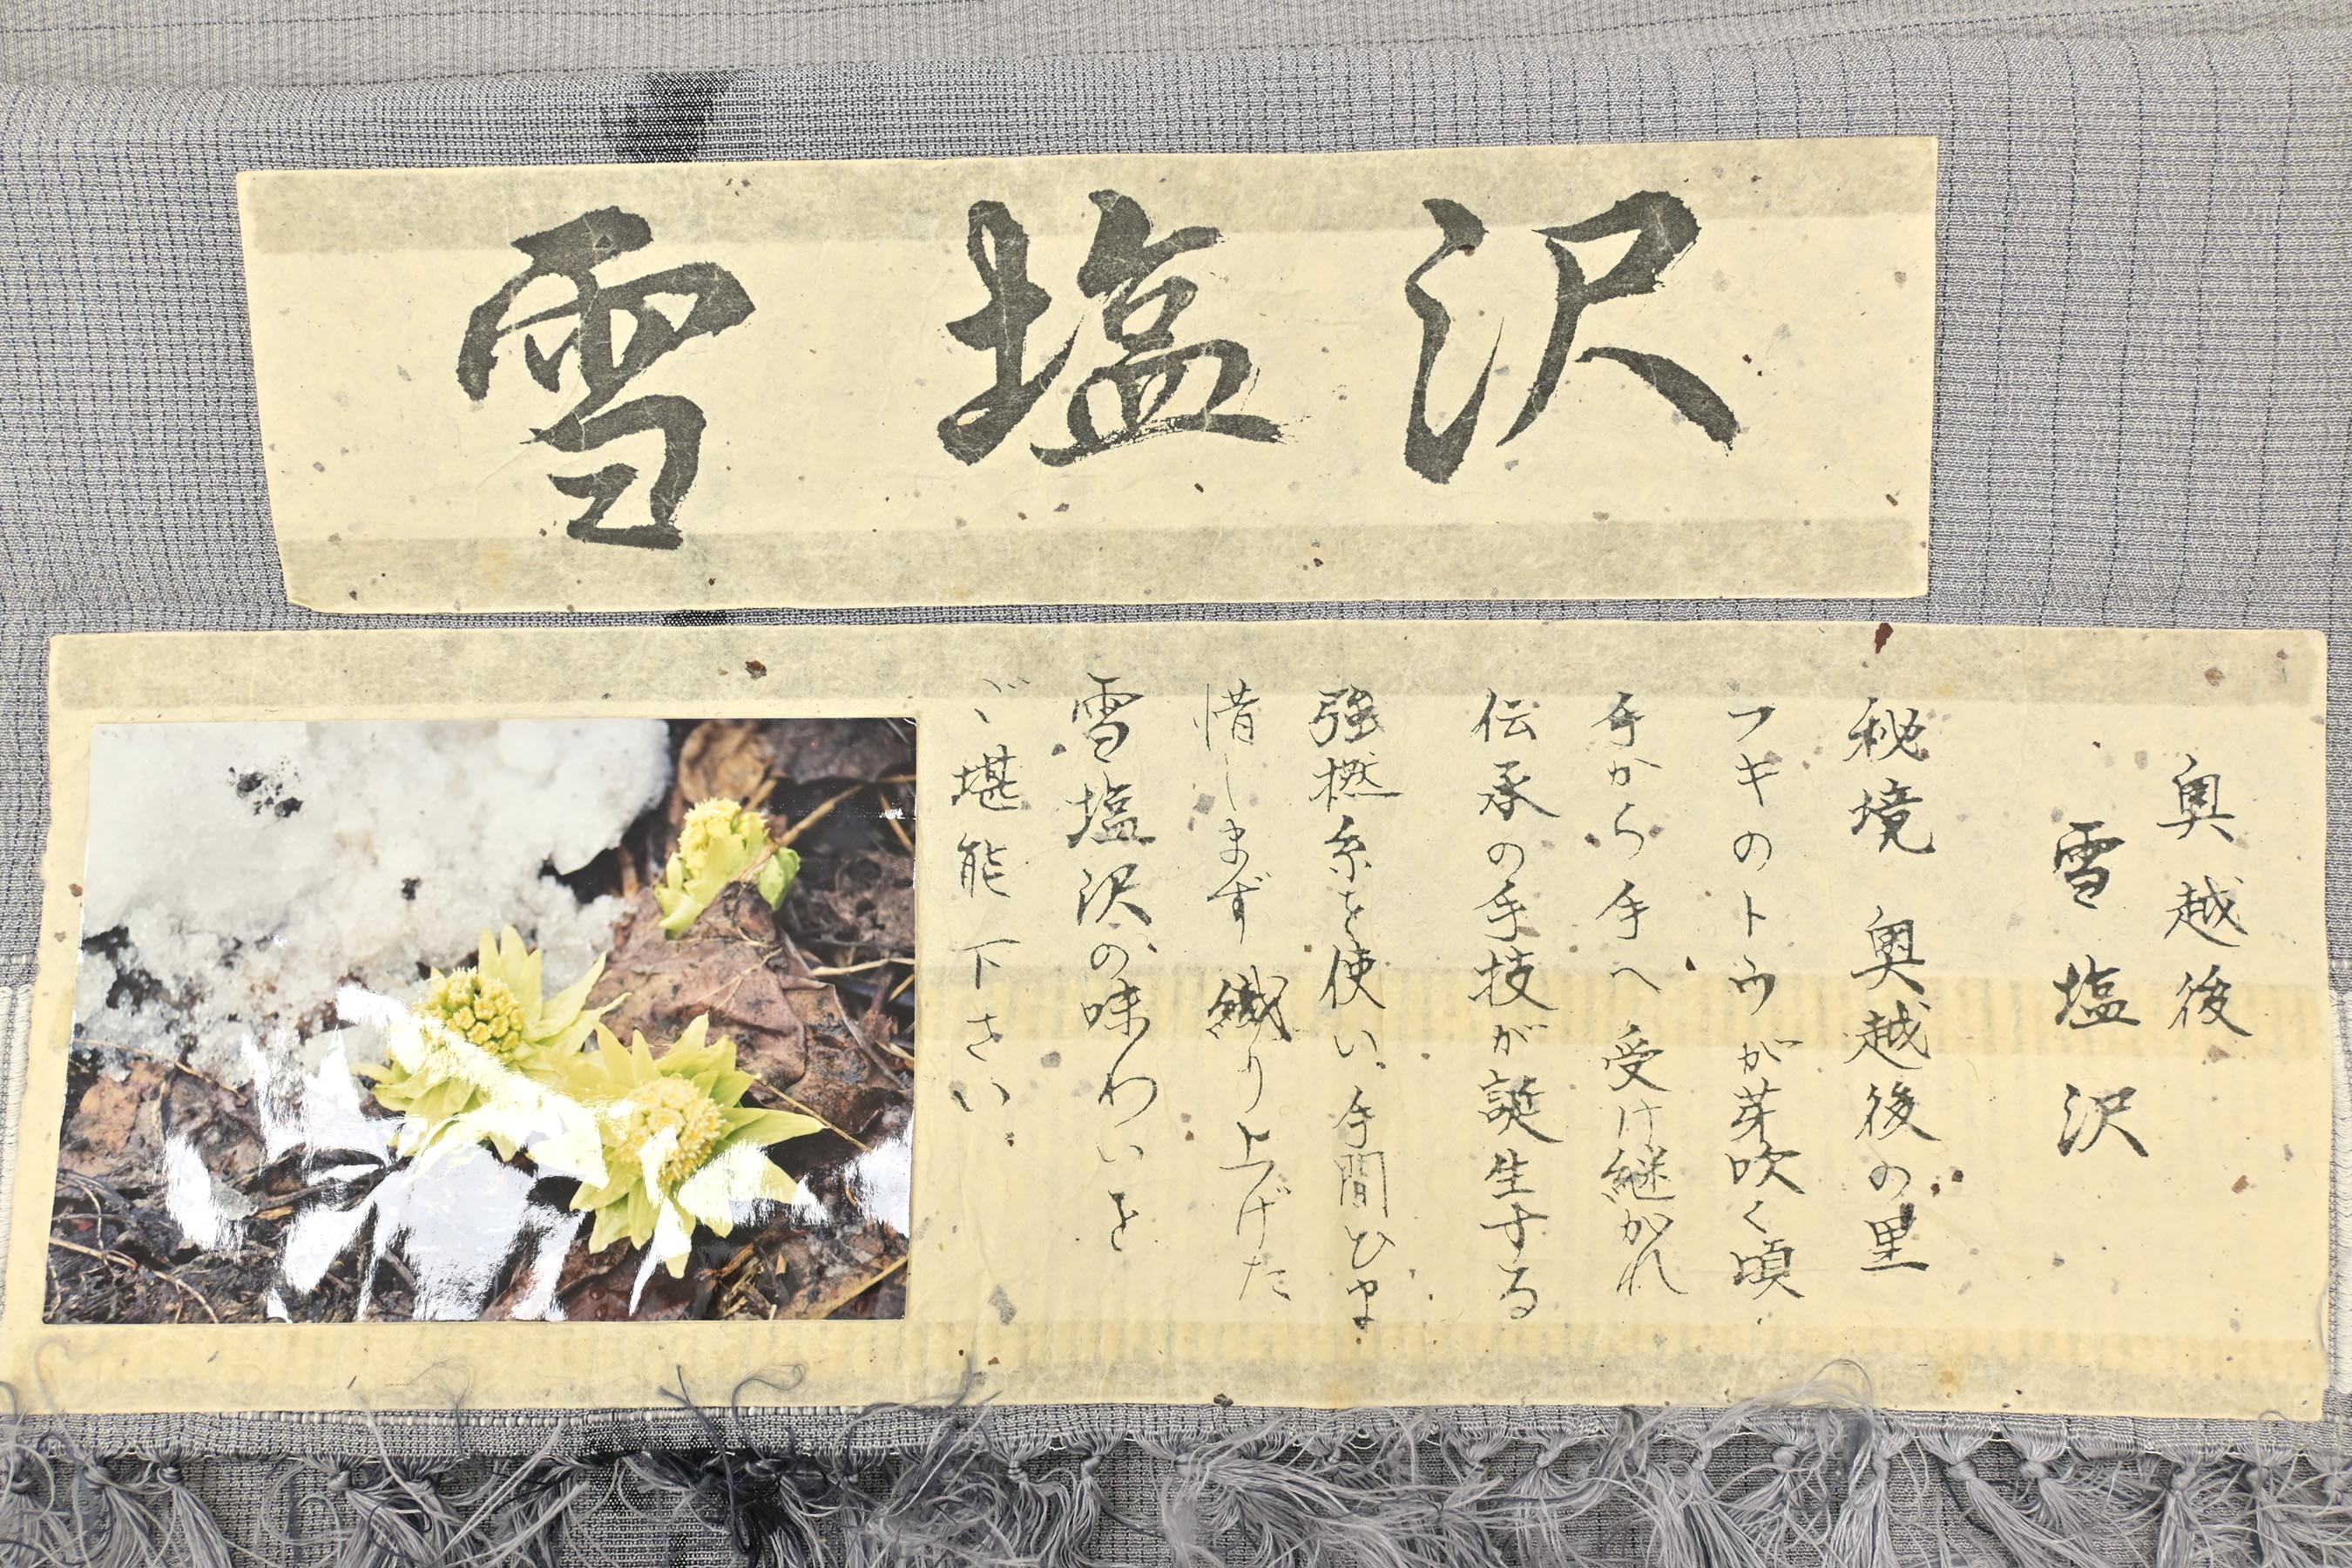 雪塩沢
奥越後
雪塩沢
秘境 奥越後の里
フキのトウが芽吹く頃
手から手へ受け継がれ
伝承の手技が誕生する
強撚糸を使い、手間ひま
惜しまず織り上げた
雪塩沢の味わいを
ご堪能下さい